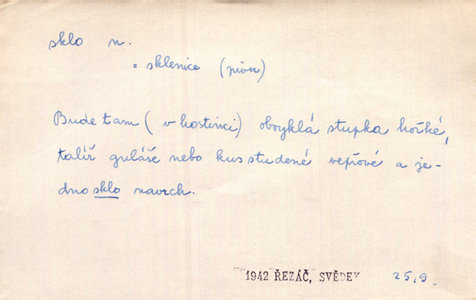 sklo n.
= sklenice (piva)
Bude tam ( v hostinci) obvyklá stupka hořké,
talíř guláše nebo kus studené vepřové a je-
dno sklo navrch.
1942 ŘEZÁČ, SVĚDEK 25,9